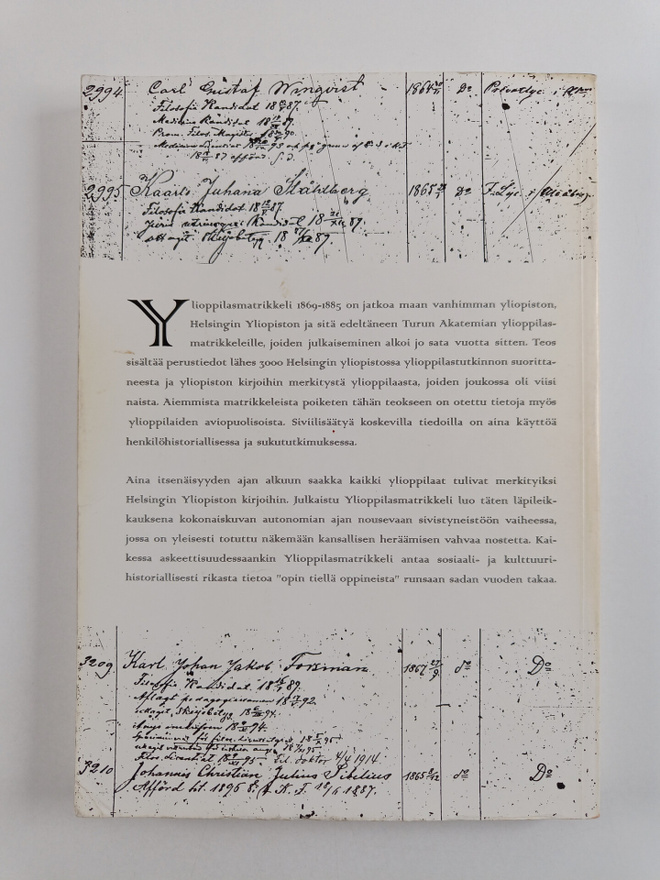 2994 Carl Gustaf Winqvist 1864 Do
Filosofie Kandidat 87.
Medicine Kandidat 18
Prom. Filos. Magister 90.
2995 Kaarlo Juhana Ståhlberg 1865 Do
Filosofie Kandidat 18 87.
Kandidat 18 89.
Ylioppilasmatrikkeli 1869-1885 on jatkoa maan vanhimman yliopiston,
Helsingin Yliopiston ja sitä edeltäneen Turun Akatemian ylioppilas-
matrikkeleille, joiden julkaiseminen alkoi jo sata vuotta sitten. Teos
sisältää perustiedot lähes 3000 Helsingin yliopistossa ylioppilastutkinnon suoritta-
neesta ja yliopiston kirjoihin merkitystä ylioppilaasta, joiden joukossa oli viisi
naista. Aiemmista matrikkeleista poiketen tähän teokseen on otettu tietoja myös
ylioppilaiden aviopuolisoista. Siviilisäätyä koskevilla tiedoilla on aina käyttöä
henkilöhistoriallisessa ja sukututkimuksessa.
Aina itsenäisyyden ajan alkuun saakka kaikki ylioppilaat tulivat merkityiksi
Helsingin Yliopiston kirjoihin. Julkaistu Ylioppilasmatrikkeli luo täten läpileik-
kauksena kokonaiskuvan autonomian ajan nousevaan sivistyneistöön vaiheessa,
jossa on yleisesti totuttu näkemään kansallisen heräämisen vahvaa nostetta. Kai-
kessa askeettisuudessaankin Ylioppilasmatrikkeli antaa sosiaali- ja kulttuuri-
historiallisesti rikasta tietoa "opin tiellä oppineista" runsaan sadan vuoden takaa.
3209 Karl Johan Jakob Forsman 1867 do Do
Filosofie Kandidat 18 89.
Aflagt pedagogiexamen 18 92.
Filos. Licentiat 18 95 Fil. doktor 4/4 1914.
3210 Johannes Christian Julius Sibelius 1865 do Do
Afförd 1896